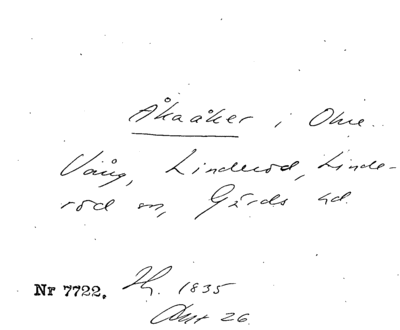 Åkaåker i Olne
Vång, Linderöd, Linde-
röd sn, Gärds hd.
Nr 7722. 1835
26